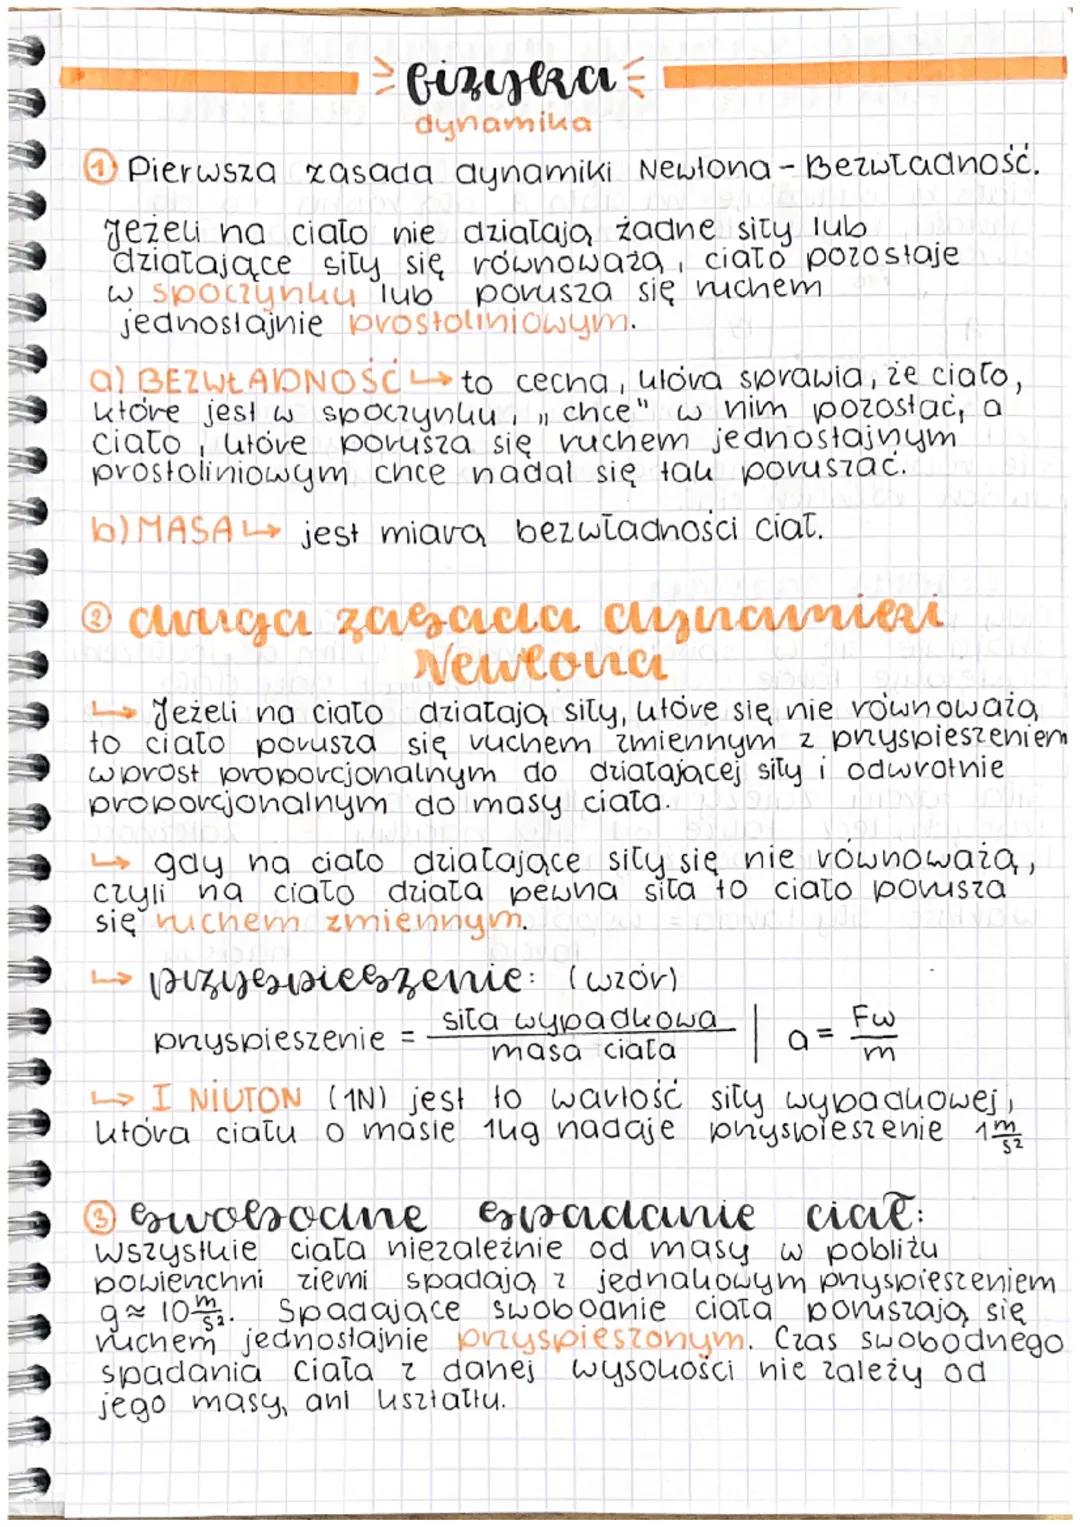 fizyka
dynamika
① Pierwsza zasada dynamiki Newtona - Bezwładność.
Jeżeli na ciało nie działają żadne siły lub
działające siły się równoważą, ciało pozostaje
w spoczynku lub porusza się ruchem
jednostajnie prostoliniowym.
a) BEZWŁADNOŚĆ ↳ to cecha, która sprawia, że ciało,
które jest w spoczynku, „chce" w nim pozostać, a
ciało, które porusza się ruchem jednostajnym
prostoliniowym chce nadal się tak poruszać.
b) MASA ↳ jest miarą bezwładności ciał.
② druga zasada dynamiki
Newtona
↳ Jeżeli na ciało działają siły, które się nie równoważą,
to ciało porusza się ruchem zmiennym z przyspieszeniem
wprost proporcjonalnym do działającej siły i odwrotnie
proporcjonalnym do masy ciała.
↳ gdy na ciało działające siły się nie równoważą,
czyli na ciało działa pewna siła to ciało porusza
się ruchem zmiennym.
↳ przyspieszenie: (wzór)
przyspieszenie = siła wypadkowa / masa ciała | a = Fw / m
↳ I NIUTON (1N) jest to wartość siły wypadkowej,
która ciału o masie 1kg nadaje przyspieszenie 1 m/s²
③ swobodne spadanie ciał:
Wszystkie ciała niezależnie od masy w pobliżu
powierzchni ziemi spadają z jednakowym przyspieszeniem
g ≈ 10 m/s². Spadające swobodnie ciała poruszają się
ruchem jednostajnie przyspieszonym. Czas swobodnego
spadania ciała z danej wysokości nie zależy od
jego masy, ani kształtu.